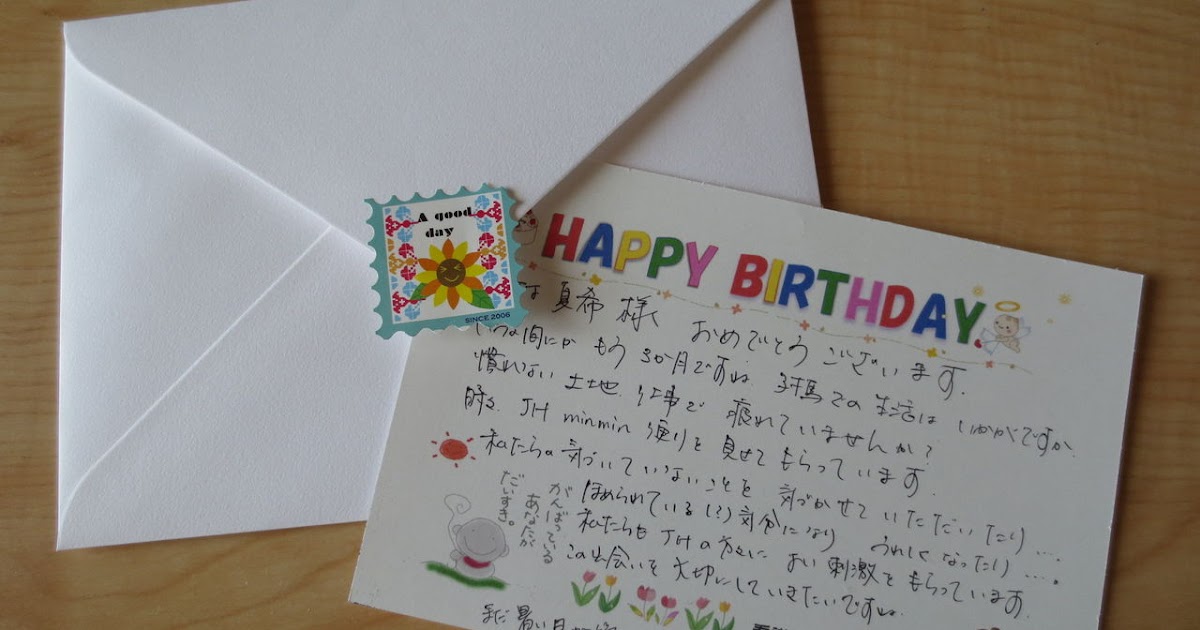 A good
day
SINCE 2006
HAPPY BIRTHDAY
夏希 様 おめでとうございます.
いつの間にか もう 3か月ですね 対馬での生活は いかがですか.
慣れない 土地. 仕事で 疲れていませんか?
時々. JH minmin 便りを 見せて もらっています.
私たちの気づいていないことを 気づかせて いただいたり ....
ほめられている(?)気分になり うれしくなったり ....
私たちも JHの方々に よい 刺激を もらっています.
この出会いを 大切にしていきたいですね.
がんばっている
あなたが
だいすき。
まだ 暑い日